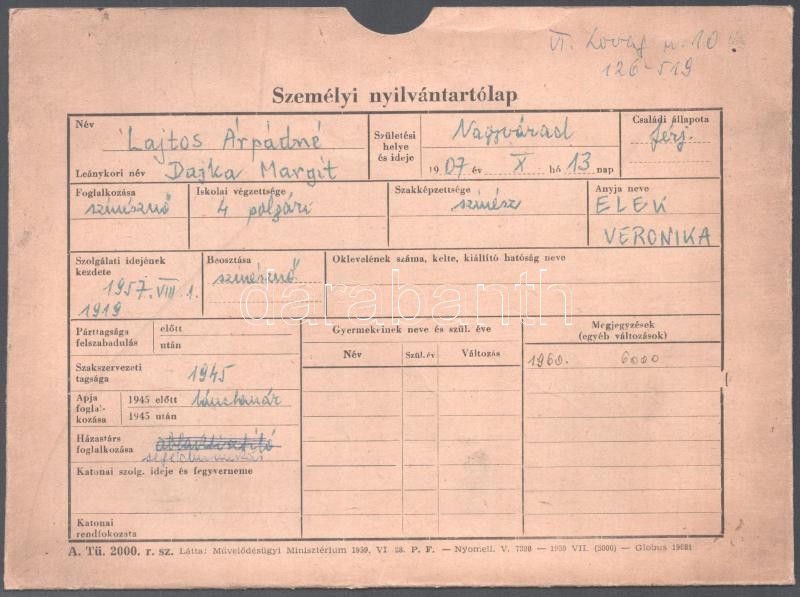 VI. Lovag u. 10
126-519
Személyi nyilvántartólap
Név Lajtos Árpádné
Leánykori név Dajka Margit
Születési helye és ideje Nagyvárad
1907 év X hó 13 nap
Családi állapota
férj.
Foglalkozása
színésznő
Iskolai végzettsége
4 polgári
Szakképzettsége
színész
Anyja neve
ELEK
VERONIKA
Szolgálati idejének kezdete
1957. VIII. 1.
1919
Beosztása
színésznő
Oklevelének száma, kelte, kiállító hatóság neve
darabanth
Párttagsága felszabadulás
előtt
után
Szakszervezeti tagsága 1945
Apja foglalkozása
1945 előtt tánctanár
1945 után
Házastárs foglalkozása
Katonai szolg. ideje és fegyverneme
Katonai rendfokozata
Gyermekeinek neve és szül. éve
Név Szül. év. Változás
Megjegyzések
(egyéb változások)
1960. 6000
A. Tü. 2000. r. sz. Látta: Művelődésügyi Minisztérium 1959. VI 28. P. F. — Nyomell. V. 7398 — 1959 VII. (5000) — Globus 19681